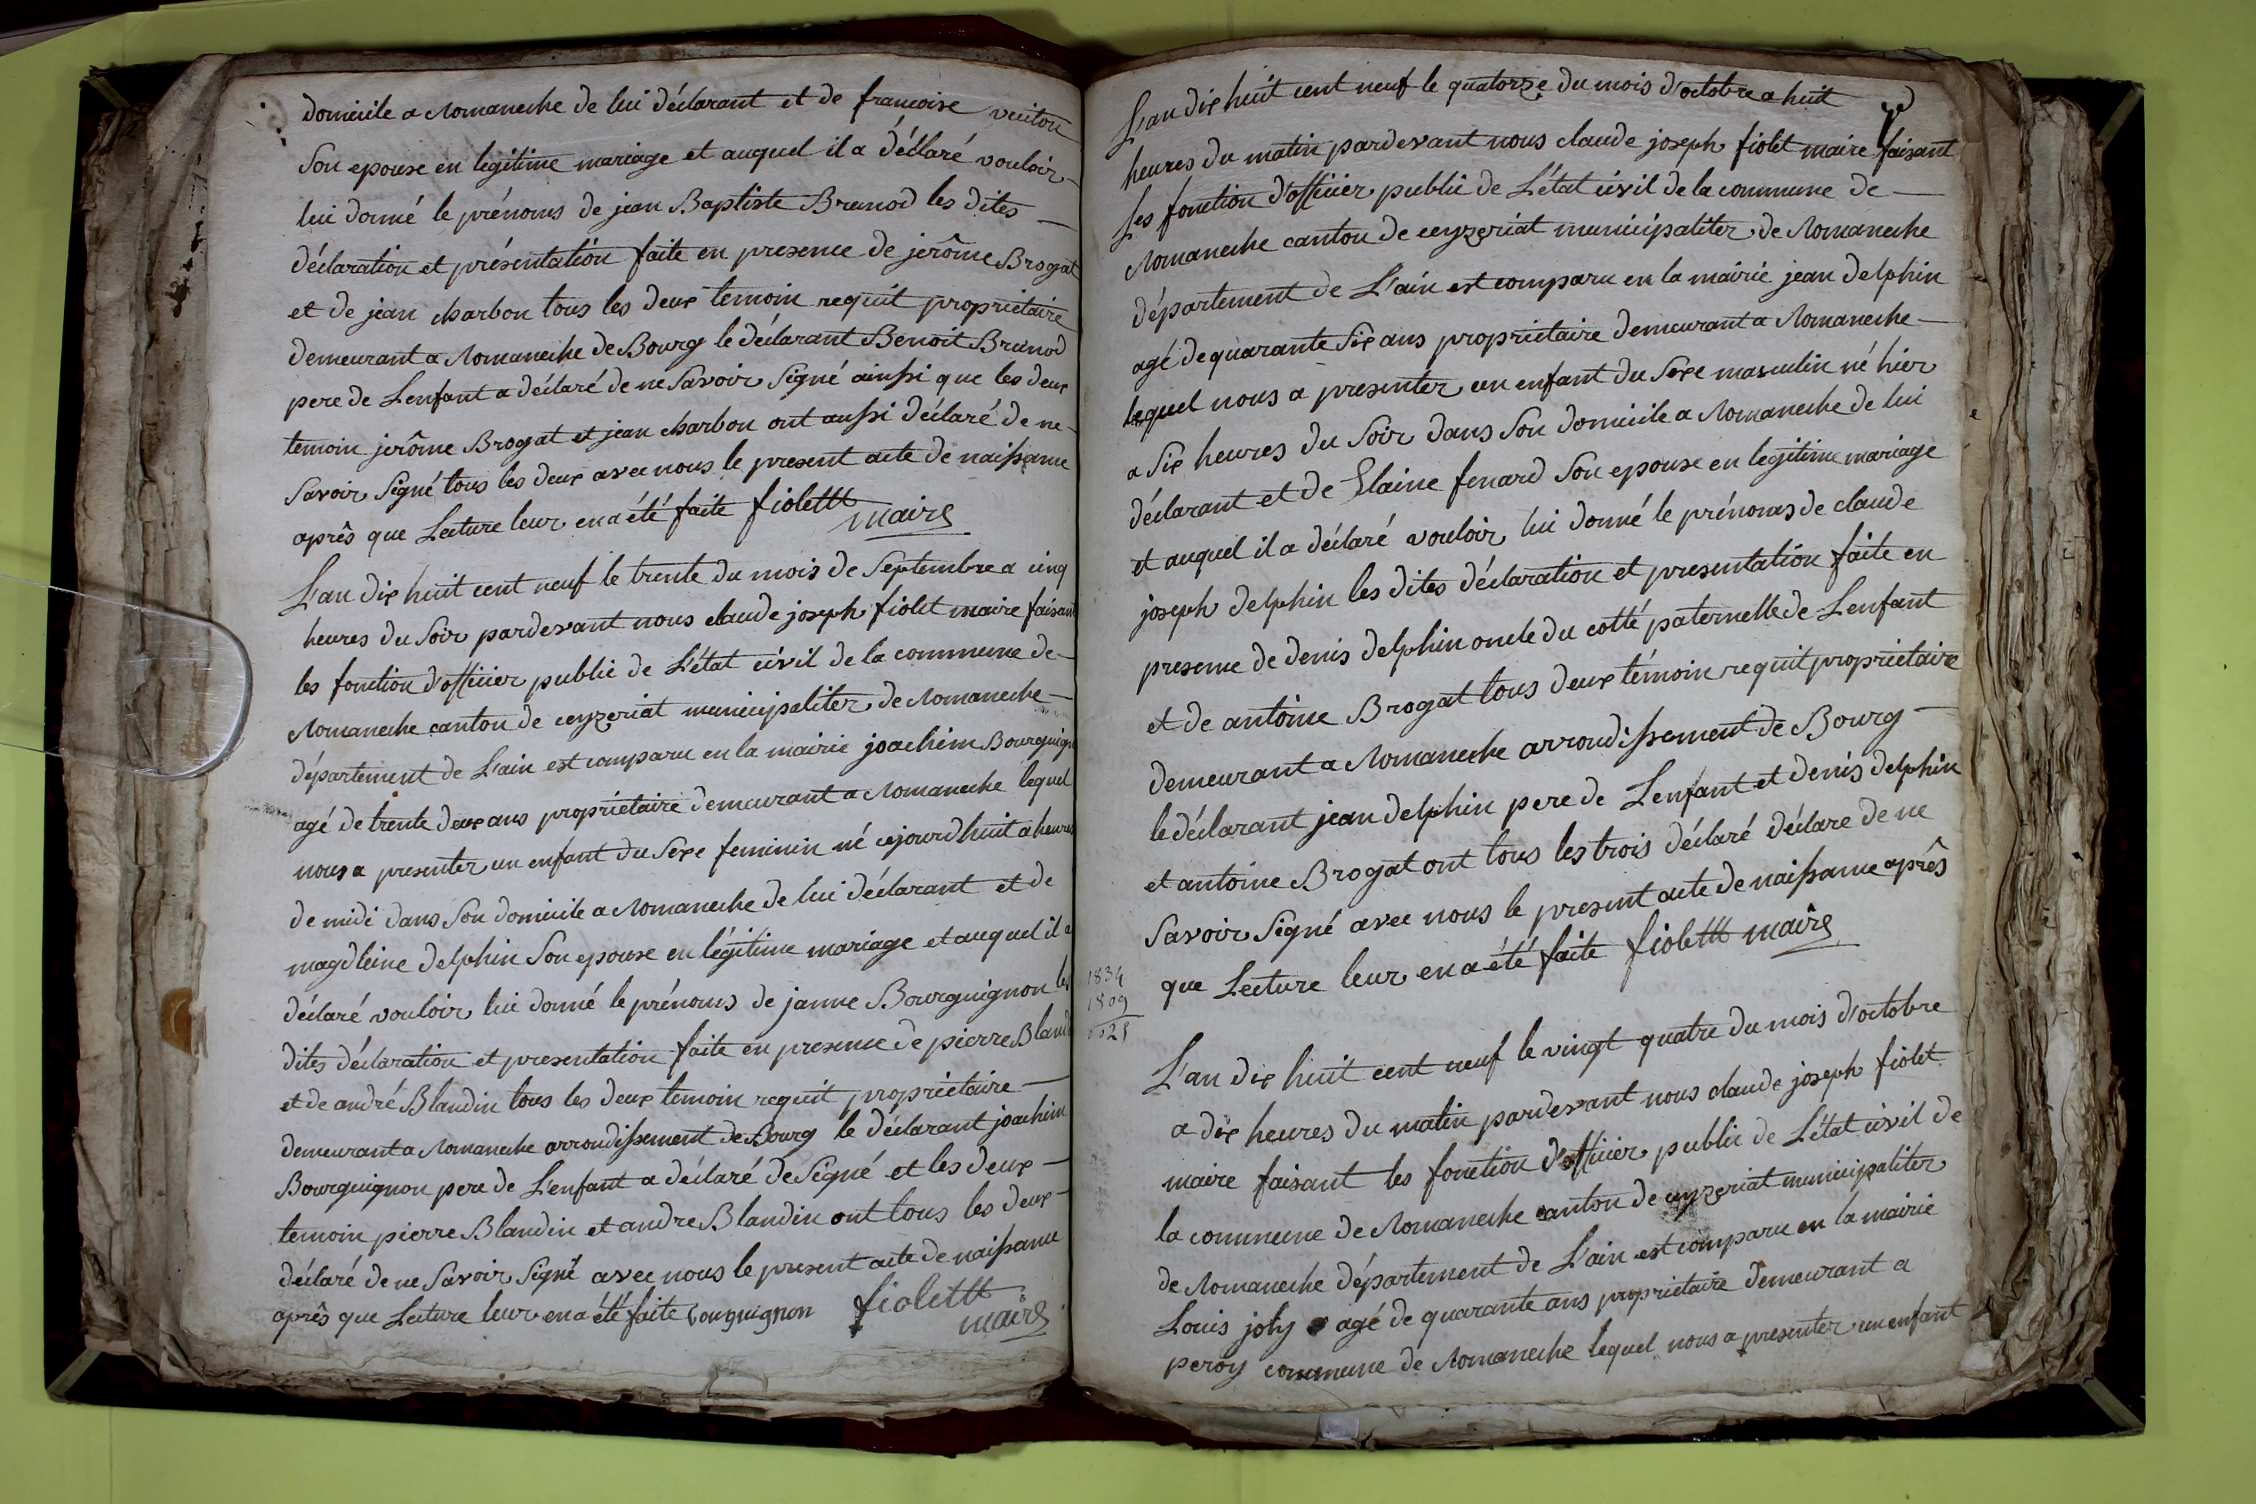 domicile a Romaneche de lui déclarant et de francoise vuiton
Son epouse en legitime mariage et auquel il a déclaré vouloir
lui donné le prénoms de jean Baptiste Brunod les dites
déclaration et présentation faite en presence de jerôme Brogat
et de jean charbon tous les deux temoin requit propriétaire
demeurant a Romaneche de Bourg le déclarant Benoit Brunod
pere de Lenfant a déclaré de ne Savoir Signé ainssi que les deux
temoin jerôme Brogat et jean charbon ont aussi déclaré de ne
Savoir Signé tous les deux avec nous le present acte de naissance
aprês que Lecture leur en a été faite fiolettt
maire
L'an dix huit cent neuf le trente du mois de Septembre a cinq
heures du Soir pardevant nous claude joseph fiolet maire faisant
les fonction d'officier public de L'état civil de la commune de
Romaneche canton de ceyzeriat municipaliter de Romaneche
département de L'ain est comparu en la mairie joachim Bourguign
agé de trente deux ans propriétaire demeurant a Romaneche lequel
nous a presenter un enfant du Sexe feminin né cejourdhuit a heures
de midi dans Son domicile a Romaneche de lui déclarant et de
magdleine delphin Son epouse en légitime mariage et auquel il a
déclaré vouloir lui donné le prénoms de janne Bourguignon les
dites déclaration et presentation faite en presence de pierre Bland
et de andré Blandin tous les deux temoin requit propriétaire
demeurant a Romaneche arrondissement de Bourg le déclarant joachim
Bourguignon pere de L'enfant a déclaré de Signé et les deux
temoin pierre Blandin et andre Blandin ont tous les deux
déclaré de ne Savoir Signé avec nous le present acte de naissance
aprês que Lecture leur en a été faite bourguignon fiolettt
maire
L'an dix huit cent neuf le quatorze du mois d'octobre a huit
heures du matin pardevant nous claude joseph fiolet maire faisant
Les fonction d'officier public de L'état civil de la commune de
Romaneche canton de ceyzeriat municipaliter de Romaneche
département de L'ain est comparu en la mairie jean delphin
agé de quarante Six ans propriétaire demeurant a Romaneche
lequel nous a presenter un enfant du Sexe masculin né hier
a Six heures du Soir dans Son domicile a Romaneche de lui
déclarant et de Elaine fenard Son epouse en legitime mariage
et auquel il a déclaré vouloir lui donné le prénoms de claude
joseph delphin les dites déclaration et presentation faite en
presence de denis delphin oncle du cotté paternelle de Lenfant
et de antoine Brogat tous deux témoin requit propriétaire
demeurant a Romaneche arrondissement de Bourg
le déclarant jean delphin pere de Lenfant et denis delphin
et antoine Brogat ont tous les trois déclaré déclare de ne
Savoir Signé avec nous le present acte de naissance aprês
que Lecture leur en a été faite fiolettt maire
1834
1809
25
L'an dix huit cent neuf le vingt quatre du mois d'octobre
a dix heures du matin pardevant nous claude joseph fiolet
maire faisant les fonction d'officier public de L'état civil de
la commune de Romaneche canton de ceyzeriat municipalitér
de Romaneche département de L'ain est comparu en la mairie
Louis joly agé de quarante ans propriétaire demeurant a
peroy commune de Romaneche lequel nous a presenter un enfant